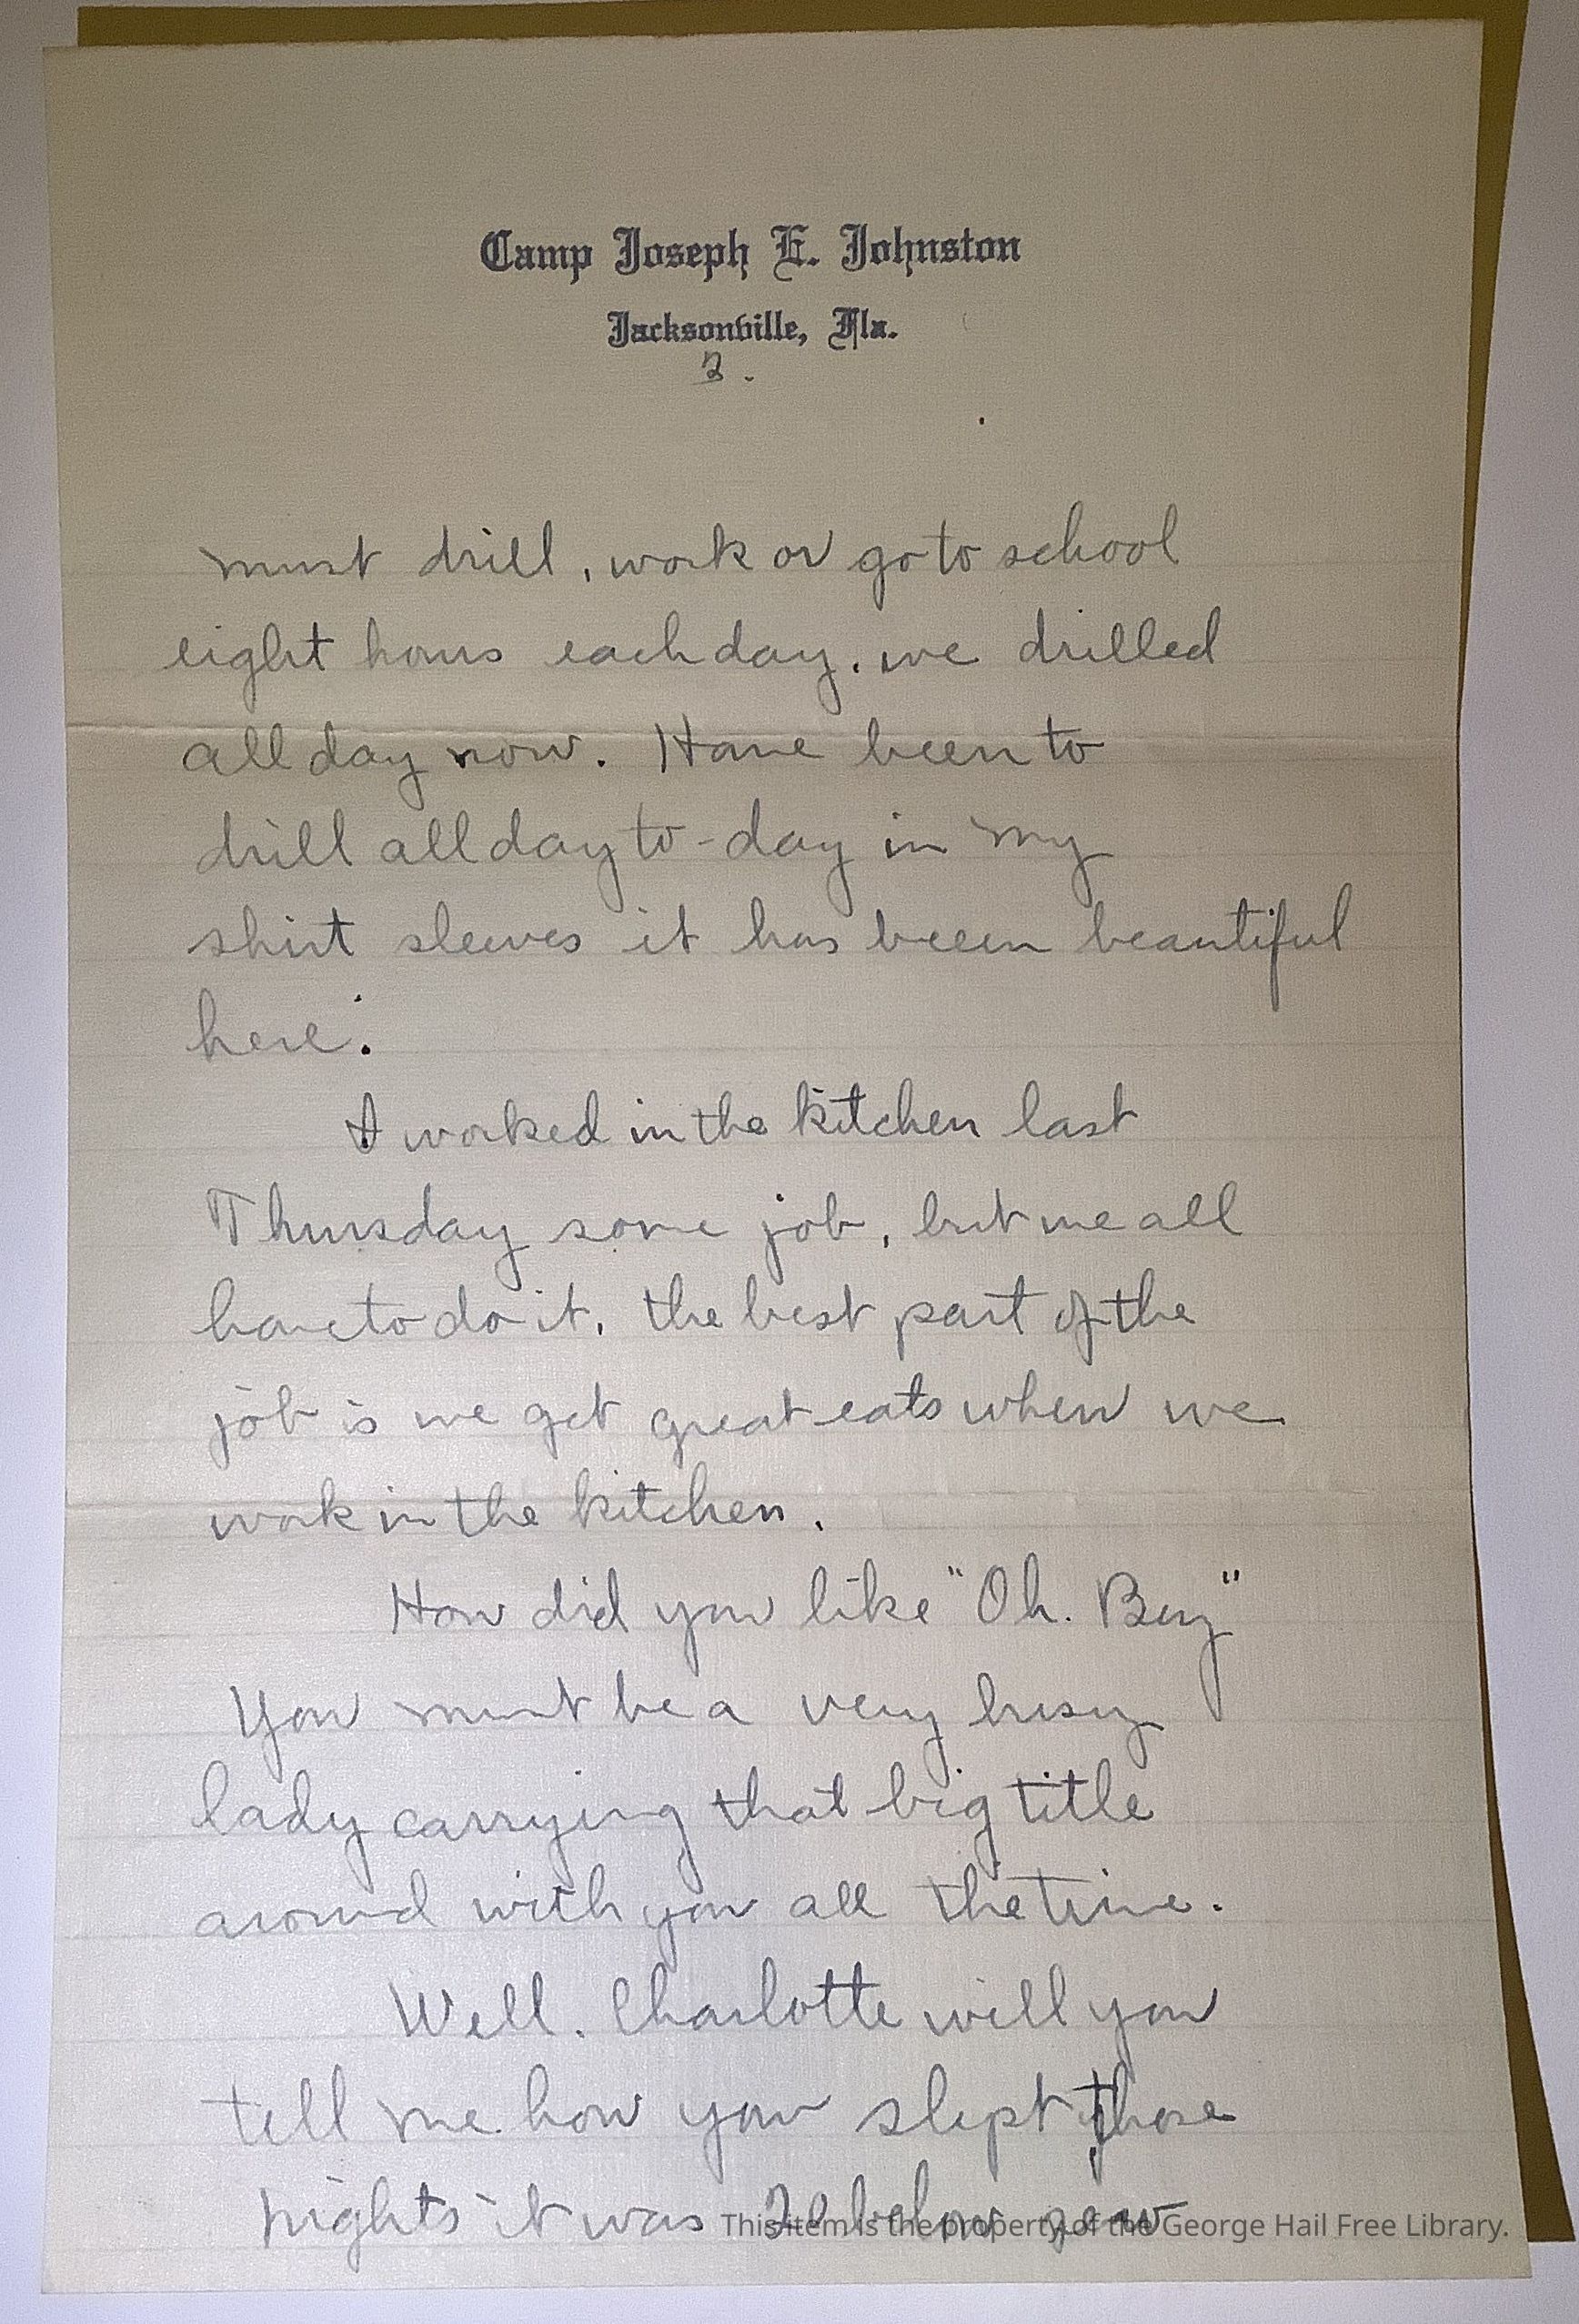 Camp Joseph E. Johnston
Jacksonville, Fla.
2.
must drill, work or go to school
eight hours each day. we drilled
all day now. Have been to
drill all day to-day in my
shirt sleeves it has been beautiful
here.
I worked in the kitchen last
Thursday some job, but we all
have to do it. the best part of the
job is we get great eats when we
work in the kitchen.
How did you like "Oh. Boy"
You must be a very busy
lady carrying that big title
around with you all the time.
Well. Charlotte will you
tell me how you slept those
nights it was 20 below zero
This item is the property of the George Hail Free Library.